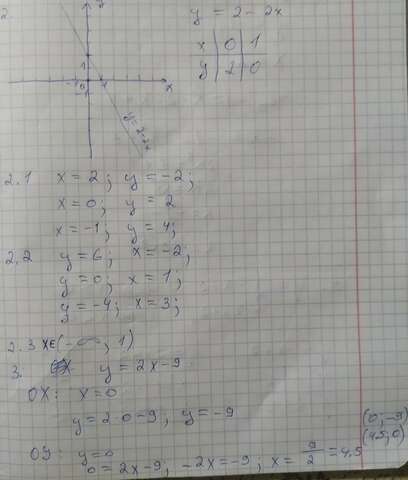 2.
y
y = 2 - 2x
x | 0 | 1
y | 2 | 0
1
-1 0 1 x
-1
y = 2 - 2x
2.1 x = 2; y = -2;
x = 0; y = 2
x = -1; y = 4;
2.2 y = 6; x = -2;
y = 0; x = 1;
y = -4; x = 3;
2.3 x∈(-∞; 1)
3. y = 2x - 9
OX: x = 0
y = 2·0 - 9, y = -9
(0; -9)
(4,5; 0)
OY: y = 0
0 = 2x - 9; -2x = -9; x = 9/2 = 4,5